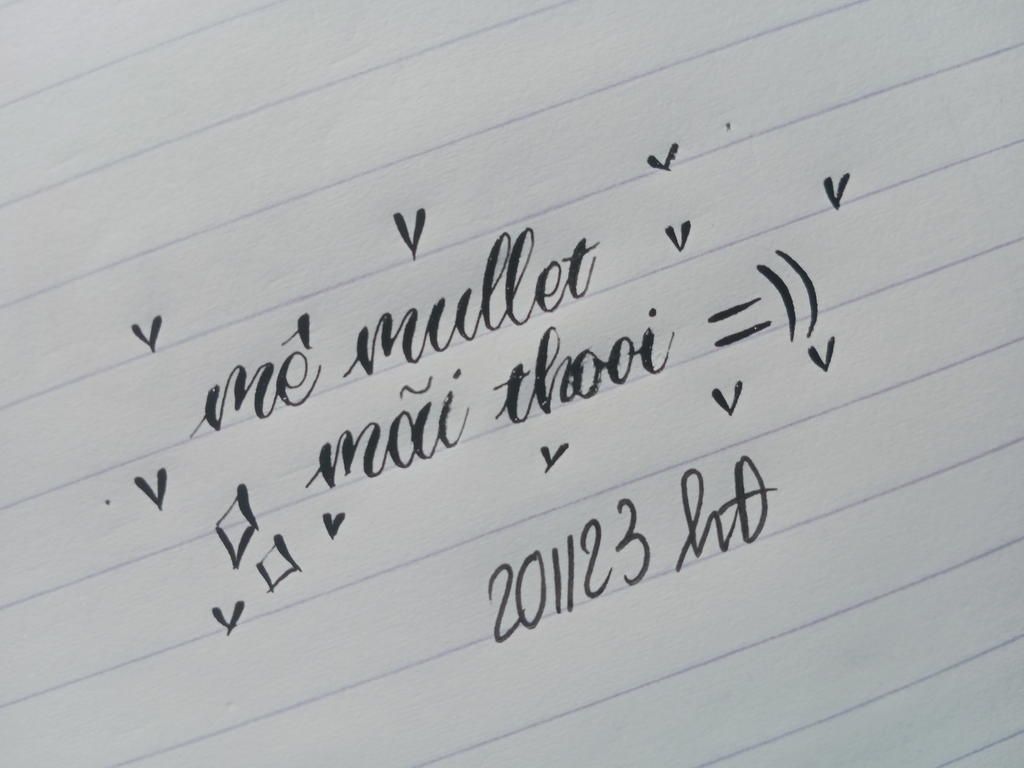 mê mullet
mãi thooi =))
201123